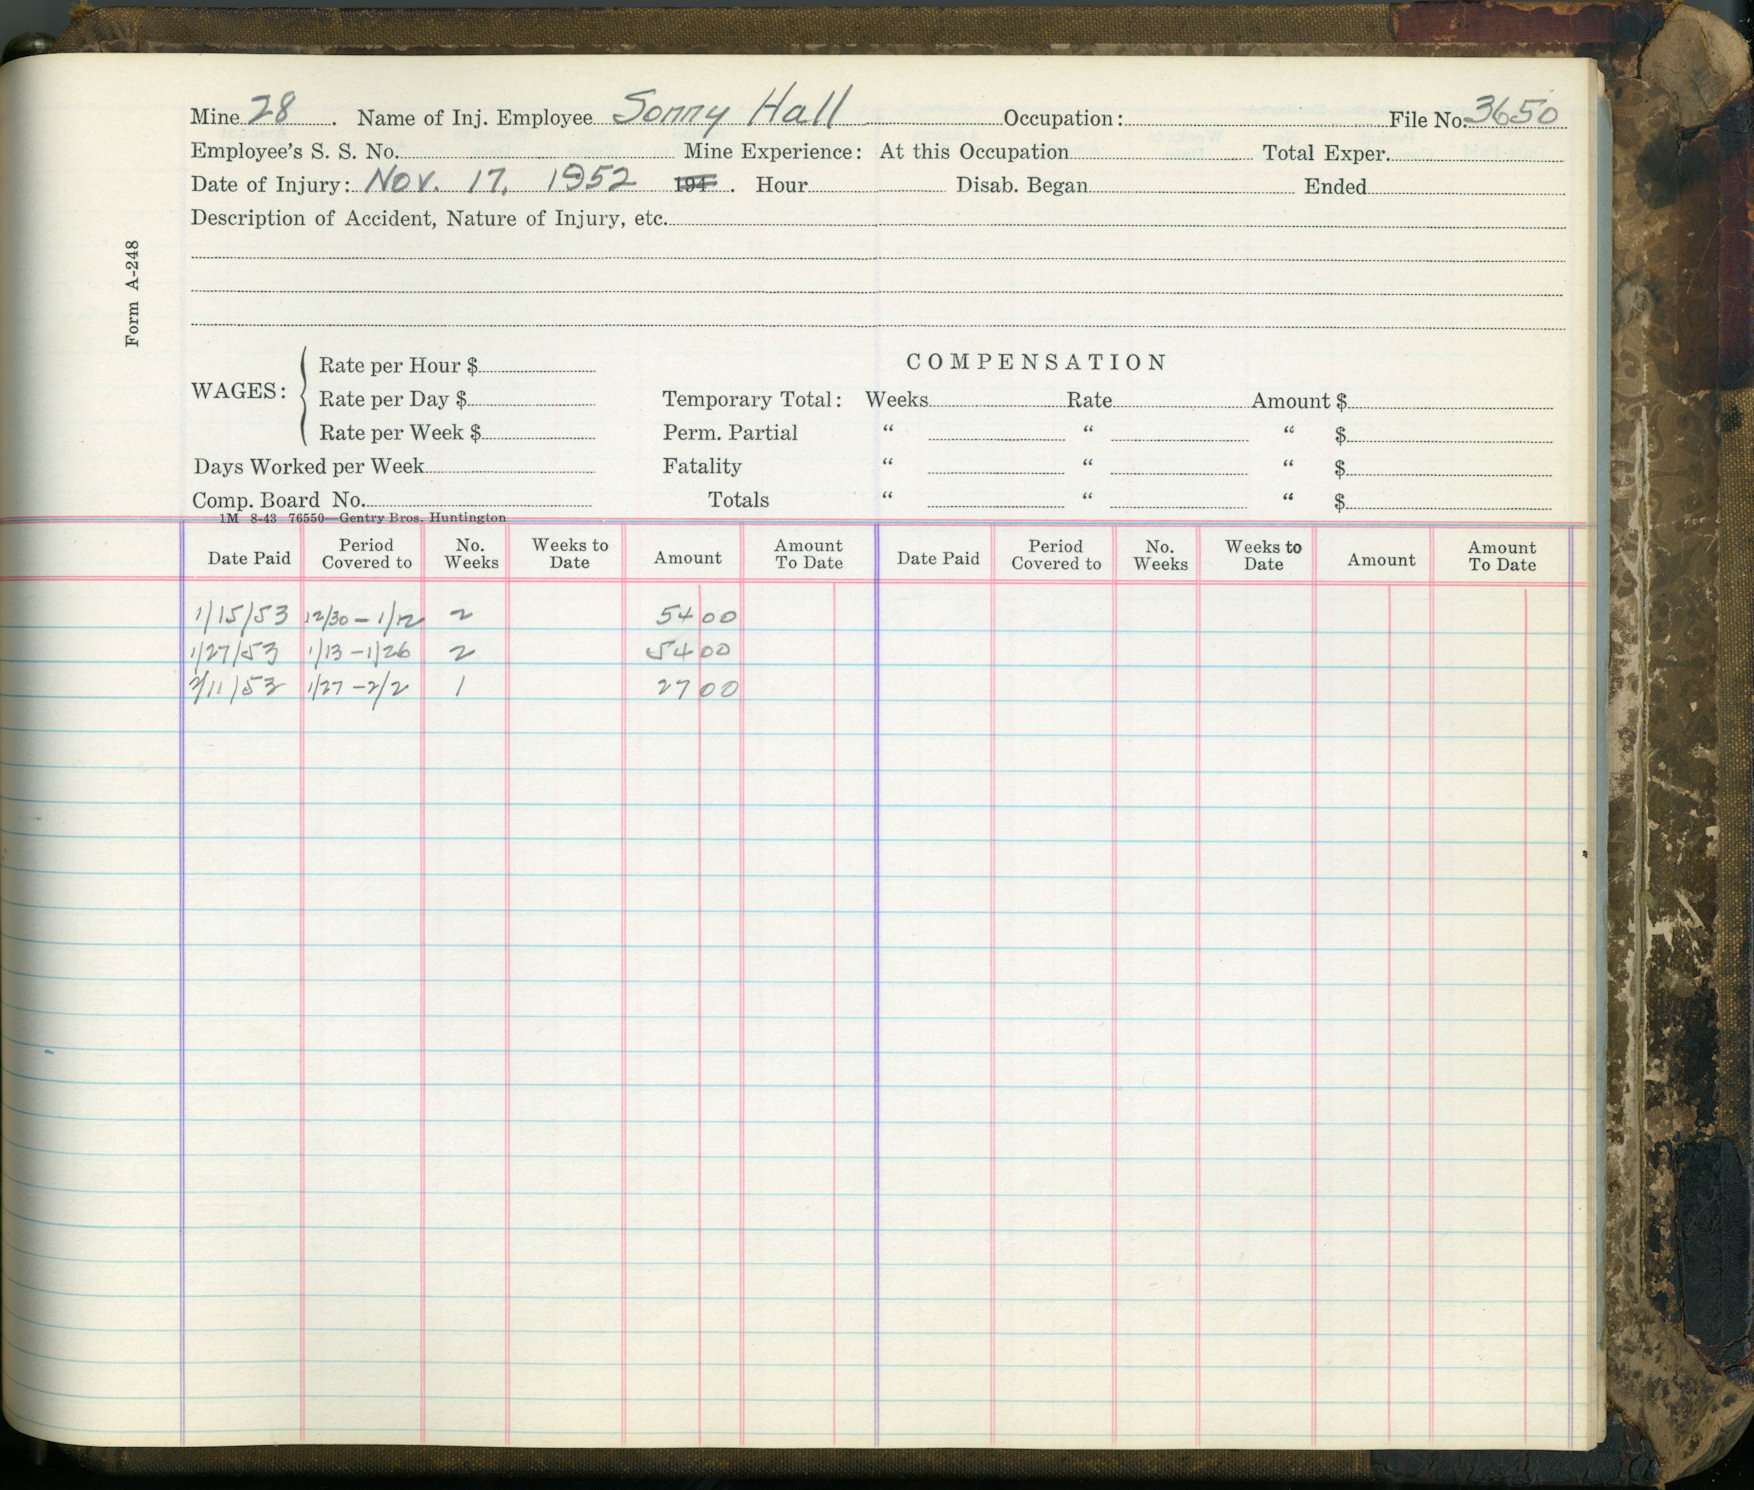 Mine 28 . Name of Inj. Employee Sonny Hall Occupation: File No. 3650
Employee's S. S. No. Mine Experience: At this Occupation Total Exper.
Date of Injury: Nov. 17, 1952 194 . Hour Disab. Began Ended
Description of Accident, Nature of Injury, etc.
Form A-248
COMPENSATION
WAGES: Rate per Hour $
Rate per Day $ Temporary Total: Weeks Rate Amount $
Rate per Week $ Perm. Partial " " " $
Days Worked per Week Fatality " " " $
Comp. Board No. Totals " " " $
1M 8-43 76550—Gentry Bros. Huntington
Date Paid Period Covered to No. Weeks Weeks to Date Amount Amount To Date Date Paid Period Covered to No. Weeks Weeks to Date Amount Amount To Date
1/15/53 12/30 - 1/12 2 54 00
1/27/53 1/13 - 1/26 2 54 00
2/11/53 1/27 - 2/2 1 27 00